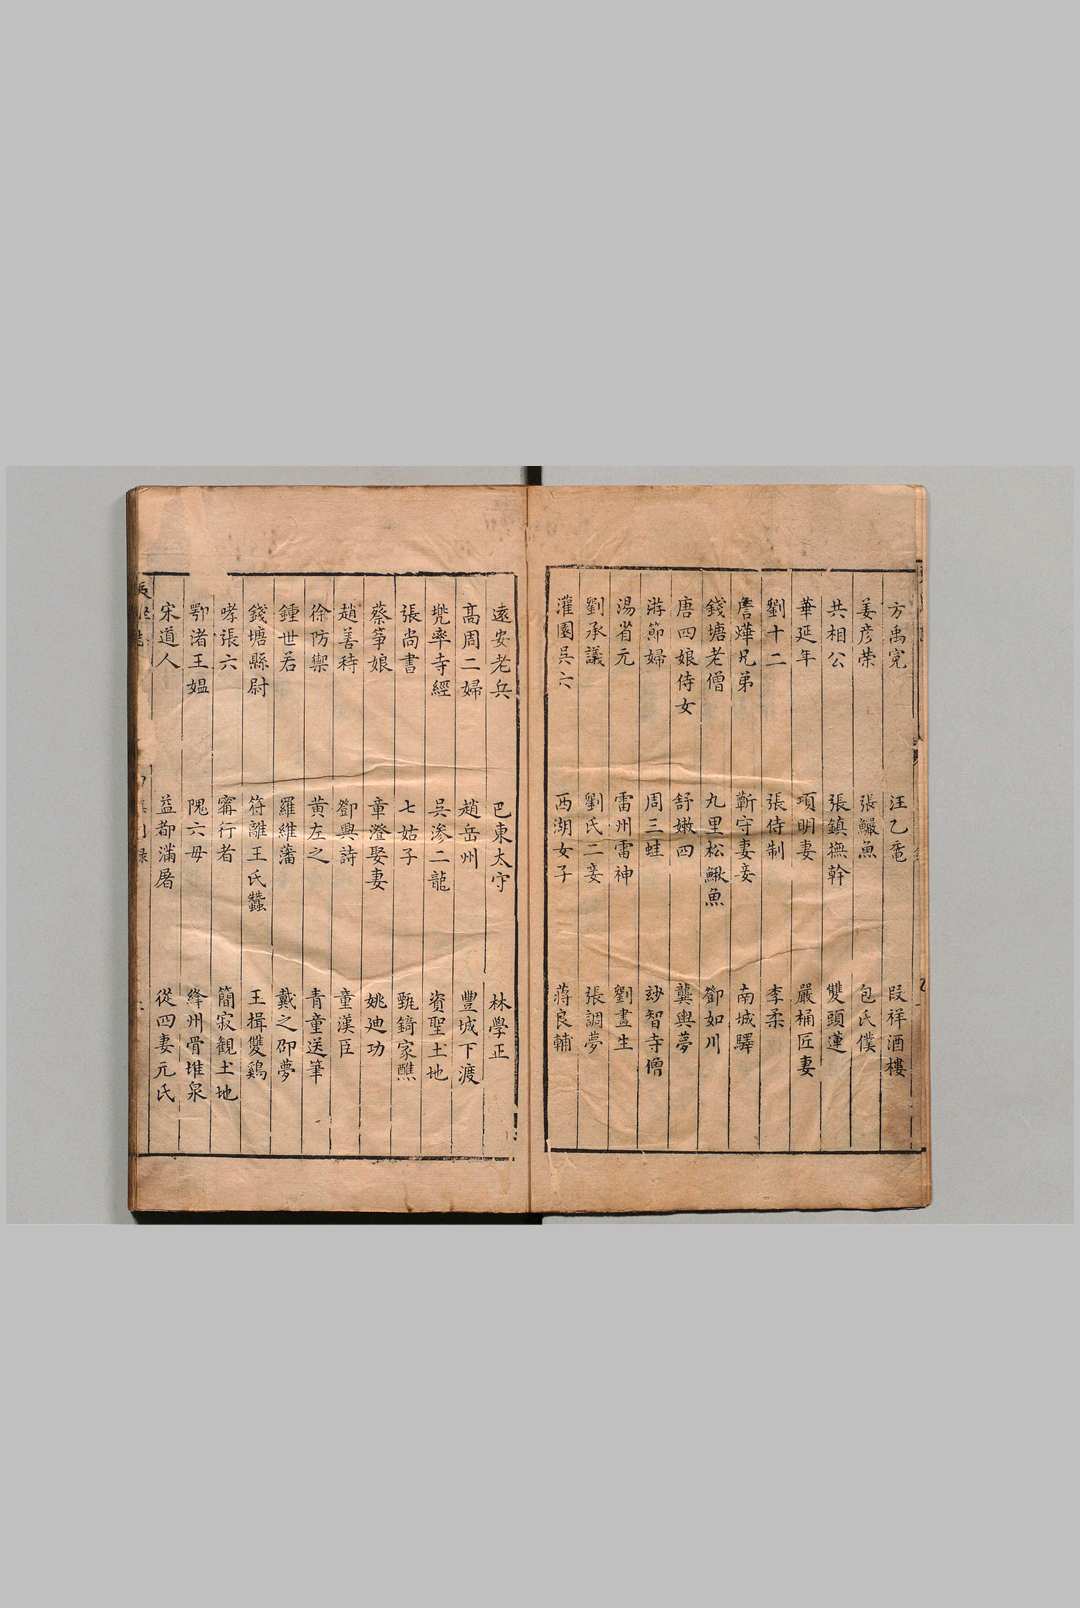 方禹冤 汪乙黿 段祥酒樓
姜彥荣 張鱺魚 包氏僕
共相公 張鎮撫幹 雙頭蓮
華延年 項明妻 嚴桶匠妻
劉十二 張侍制 李柔
詹燁兄弟 靳守妻妾 南城驛
錢塘老僧 九里松鰍魚 鄧如川
唐四娘侍女 舒嫩四 龔輿夢
游節婦 周三蛙 玅智寺僧
湯省元 雷州雷神 劉畫生
劉承議 劉氏二妾 張調夢
灌園吳六 西湖女子 蔣良輔
遠安老兵 巴東太守 林學正
高周二婦 趙岳州 豐城下渡
兠率寺經 吳滲二龍 資聖土地
張尚書 七姑子 甄錡家醮
蔡筝娘 章澄娶妻 姚迪功
趙善待 鄧興詩 童漢臣
徐防禦 黃左之 青童送筆
鍾世若 羅維藩 戴之卲夢
錢塘縣尉 符離王氏蠶 王揖雙鷄
哮張六 甯行者 簡寂観土地
鄂渚王媪 隗六母 絳州骨堆泉
宋道人 益都滿屠 從四妻元氏